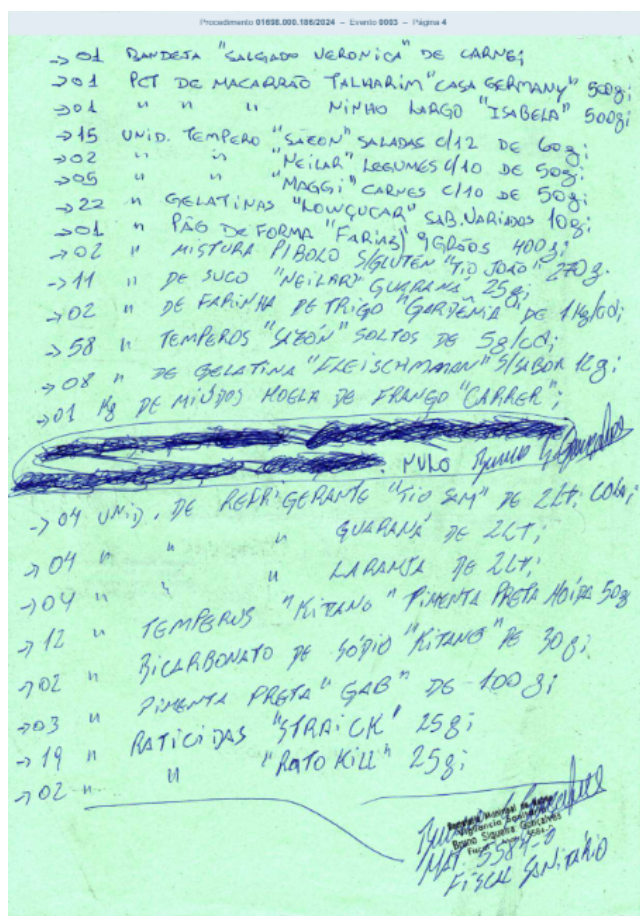 Procedimento 01698.000.186/2024 – Evento 0003 – Página 4
-> 01 BANDEJA "SALGADO VERONICA" DE CARNE;
-> 01 PCT DE MACARRÃO TALHARIM "CASA GERMANY" 500g;
-> 01 " " " NINHO LARGO "ISABELA" 500g;
-> 15 UNID. TEMPERO "SAZON" SALADAS C/12 DE 60g;
-> 02 " " "NEILAR" LEGUMES C/10 DE 50g;
-> 05 " " "MAGGI" CARNES C/10 DE 50g;
-> 22 " GELATINAS "LOWÇUCAR" SAB. VARIADOS 10g;
-> 01 " PÃO DE FORMA "FARIAS" 9GRÃOS 400g;
-> 02 " MISTURA P/BOLO S/GLUTEN "TIO JOÃO" 270g.
-> 11 " DE SUCO "NEILAR" GUARANÁ 25g;
-> 02 " DE FARINHA DE TRIGO "GARDÊNIA" DE 1Kg/cd;
-> 58 " TEMPEROS "SAZÓN" SOLTOS DE 5g/cd;
-> 08 " DE GELATINA "FLEISCHMANN" S/SABOR 12g;
-> 01 Kg DE MIÚDOS MOELA DE FRANGO "CARRER";
NULO
-> 04 UNID. DE REFRIGERANTE "TIO SAM" DE 2Lt; COLA;
-> 04 " " " GUARANÁ DE 2Lt;
-> 04 " " " LARANJA DE 2Lt;
-> 12 " TEMPEROS "KITANO" PIMENTA PRETA MOÍDA 50g
-> 02 " BICARBONATO DE SÓDIO "KITANO" DE 30g;
-> 03 " PIMENTA PRETA "GAB" DE 100g;
-> 19 " RATICIDAS "STRAICK" 25g;
-> 02 " " "RATO KILL" 25g;
Vigilância Sanitária
Bruno Siqueira Gonçalves
MAT. 5584-0
FISCAL SANITÁRIO